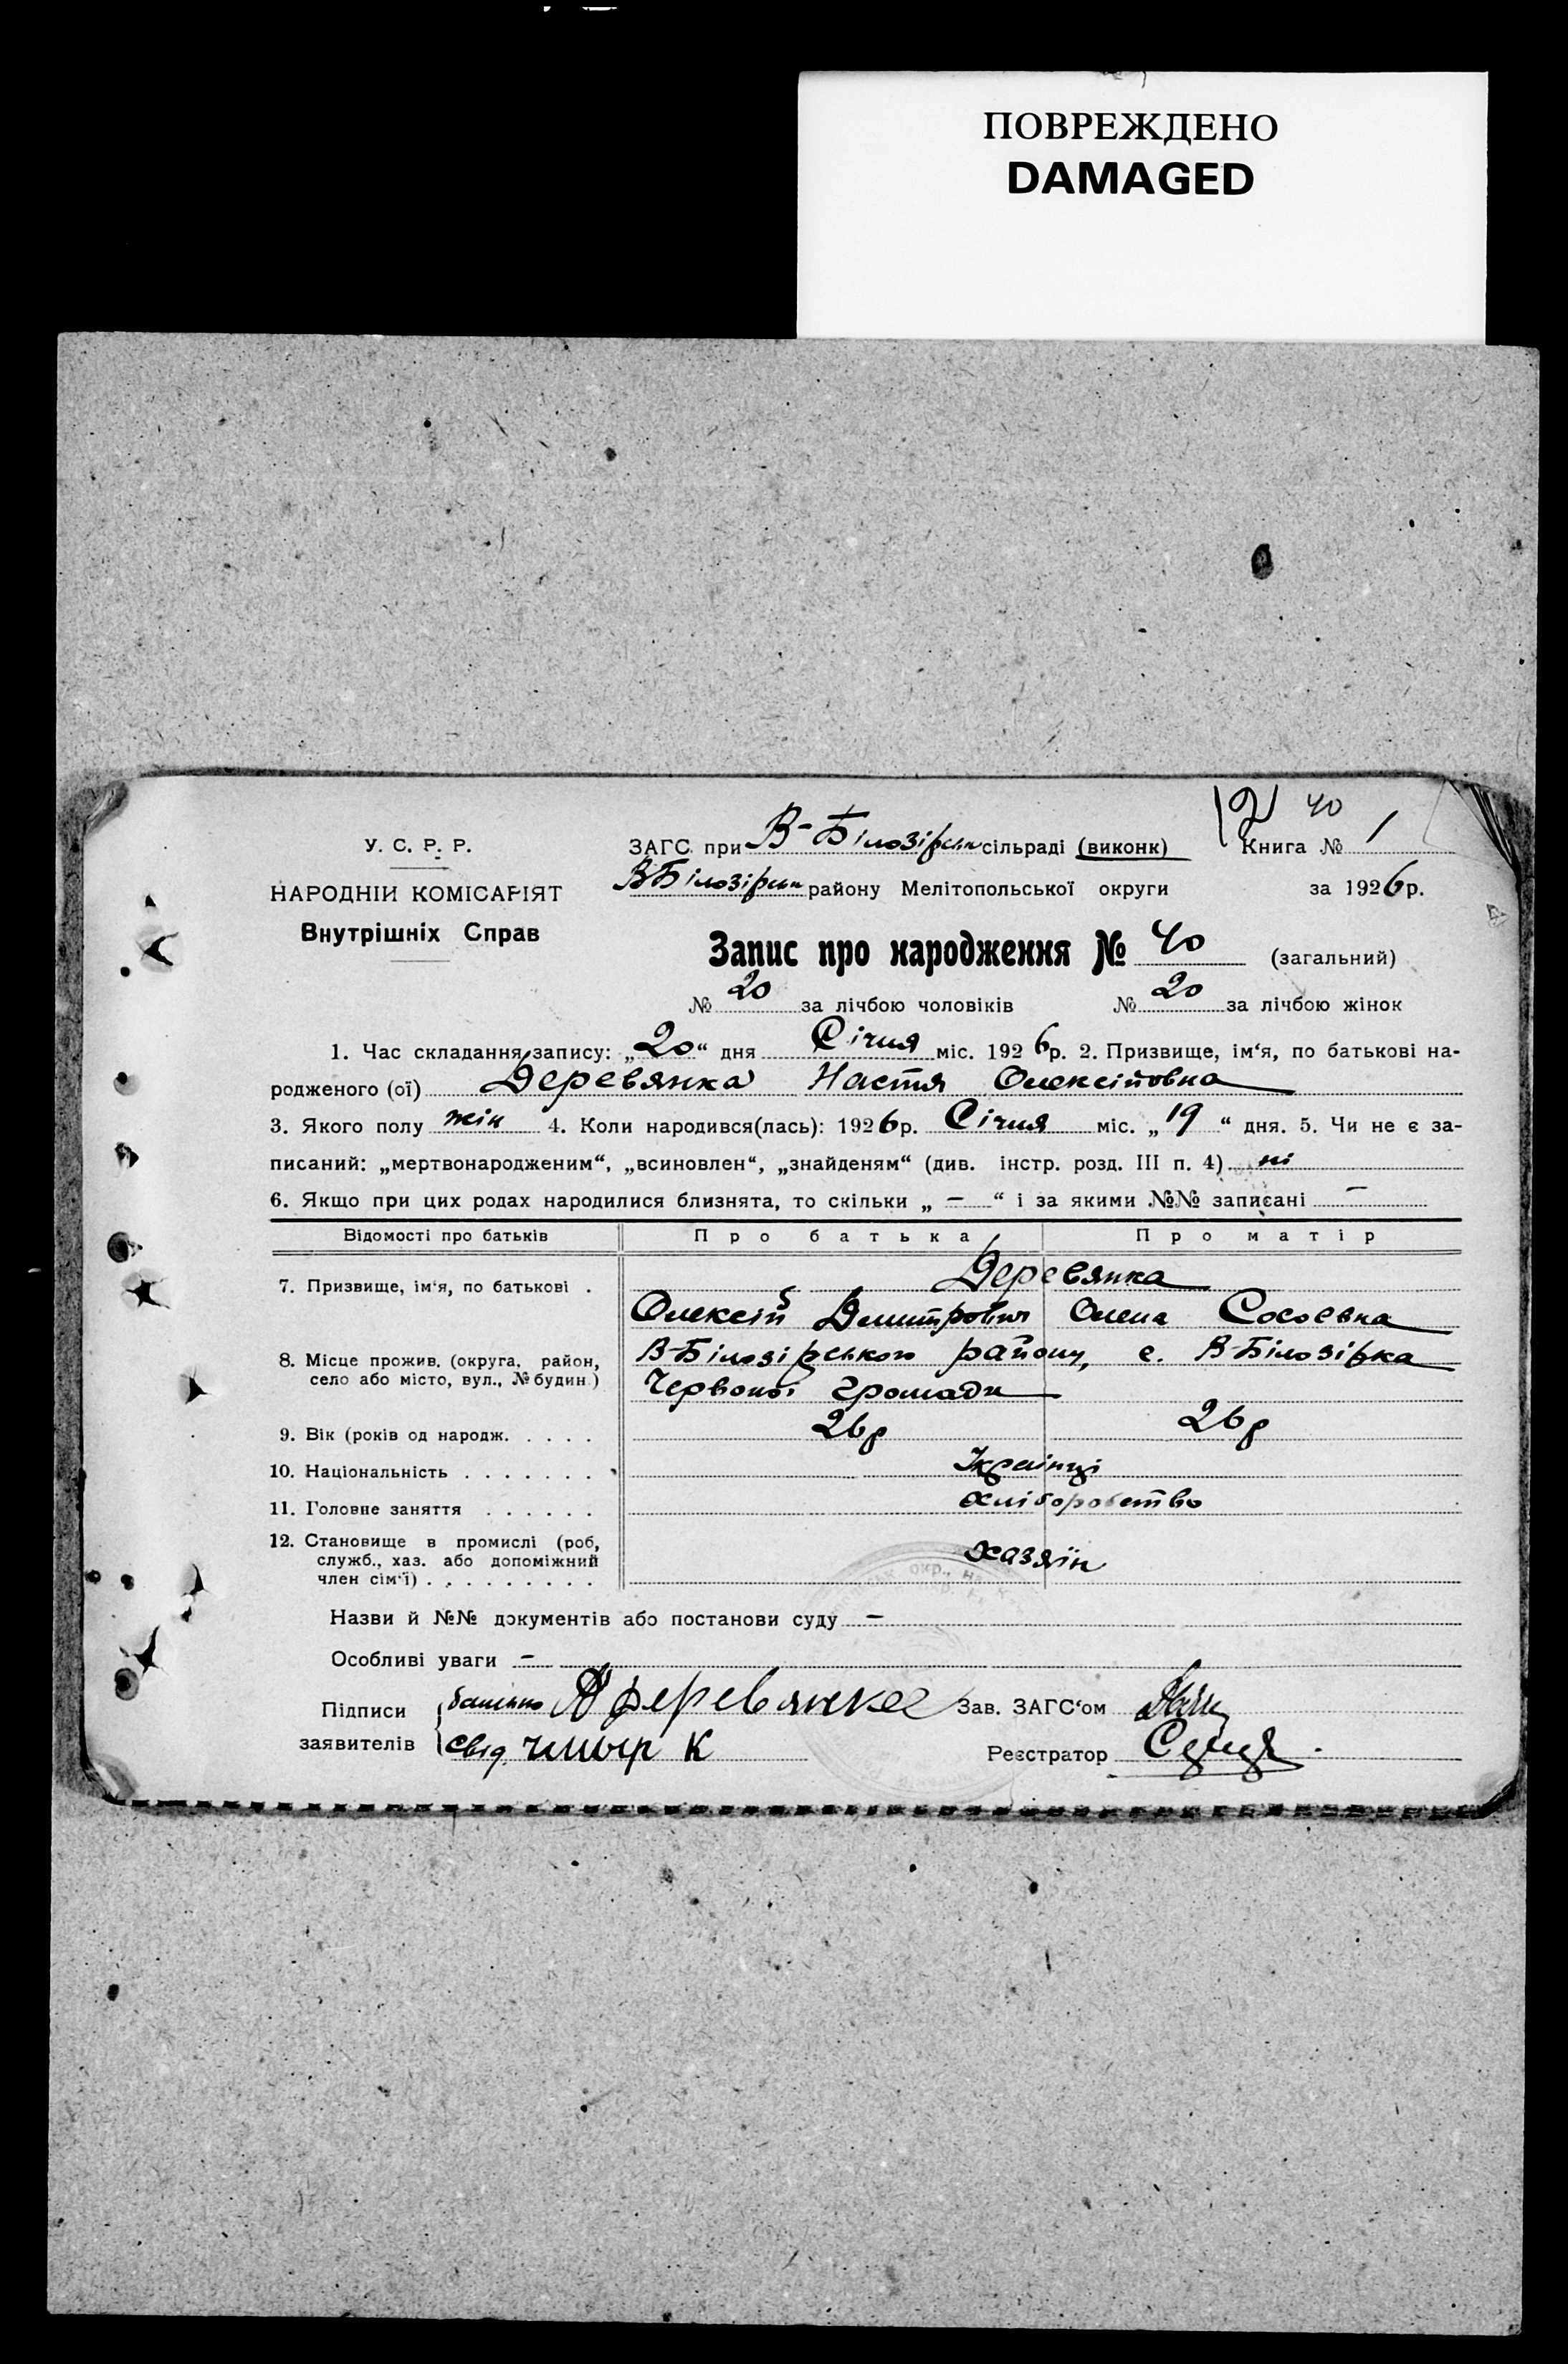 ПОВРЕЖДЕНО
DAMAGED
40
У. С. Р. Р.
ЗАГС при В-Білозірськ сільраді (виконк) Книга № 1
НАРОДНІЙ КОМІСАРІЯТ
В Білозірськ району Мелітопольської округи за 1926 р.
Внутрішніх Справ
Запис про народження № 40 (загальний)
№ 20 за лічбою чоловіків № 20 за лічбою жінок
1. Час складання запису: „20“ дня Січня міс. 1926 р. 2. Призвище, ім‘я, по батькові на-
родженого (ої) Деревянка Настя Олексіївна
3. Якого полу жін 4. Коли народився(лась): 1926 р. Січня міс. „19“ дня. 5. Чи не є за-
писаний: „мертвонародженим“, „всиновлен“, „знайденям“ (див. інстр. розд. III п. 4) ні
6. Якщо при цих родах народилися близнята, то скільки „ — “ і за якими №№ записані —
Відомості про батьків Про батька Про матір
Деревянка
7. Призвище, ім‘я, по батькові .
Олексій Дмитрович Олена Сосоєвна
8. Місце прожив. (округа, район, село або місто, вул., № будин.)
В-Білозірського району, с. В Білозірка
Червоної громади
9. Вік (років од народж. . . . . 26 р 26 р
10. Національність . . . . . . . Українці
11. Головне заняття . . . . . . хліборобство
12. Становище в промислі (роб, служб., хаз. або допоміжний член сім‘ї) . . . . . . . . . хазяїн
Назви й №№ документів або постанови суду —
Особливі уваги —
Підписи заявителів
батько А Деревянко Зав. ЗАГС‘ом
свід. Чмыр К Реєстратор